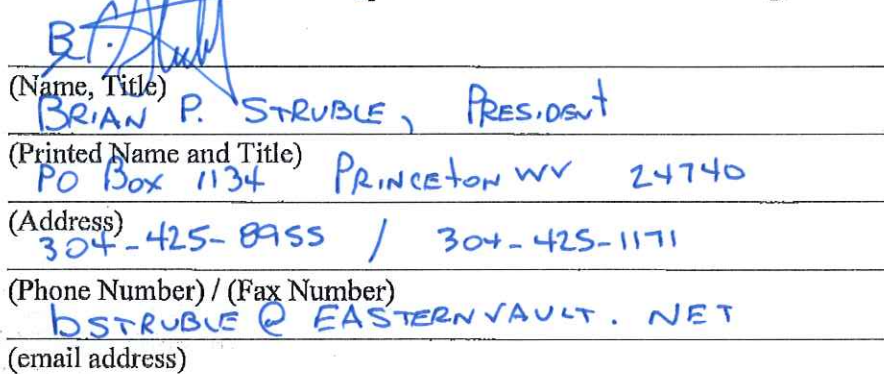 (Name, Title)
BRIAN P. STRUBLE, PRESIDENT
(Printed Name and Title)
PO Box 1134 PRINCETON WV 24740
(Address)
304-425-8955 / 304-425-1171
(Phone Number) / (Fax Number)
bSTRUBLE @ EASTERNVAULT. NET
(email address)